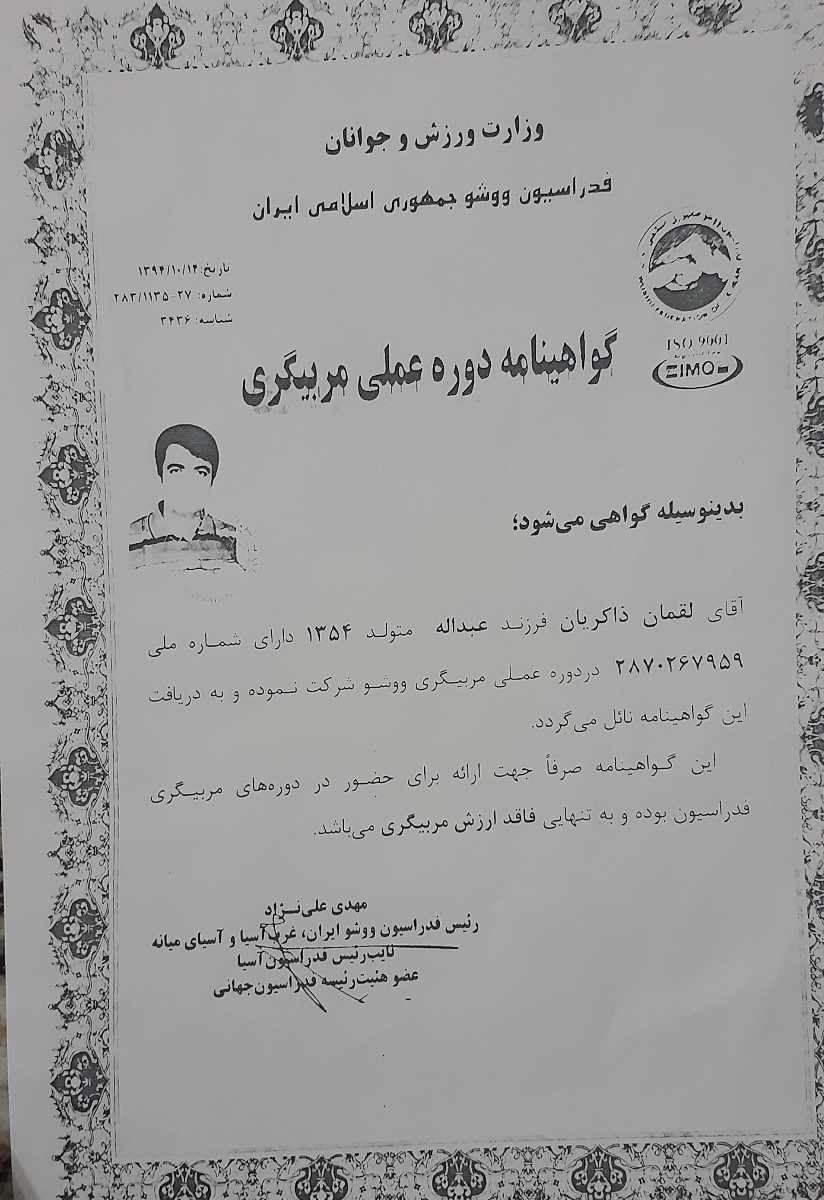 وزارت ورزش و جوانان
فدراسیون ووشو جمهوری اسلامی ایران
تاریخ: ۱۳۹۴/۱۰/۱۴
شماره: ۲۷-۲۸۳/۱۱۳۵
شناسه: ۳۴۳۶
ISO 9001
IMQ
گواهینامه دوره عملی مربیگری
بدینوسیله گواهی می‌شود؛
آقای لقمان ذاکریان فرزند عبداله متولد ۱۳۵۴ دارای شماره ملی
۲۸۷۰۲۶۷۹۵۹ دردوره عملی مربیگری ووشو شرکت نموده و به دریافت
این گواهینامه نائل می‌گردد.
این گواهینامه صرفاً جهت ارائه برای حضور در دوره‌های مربیگری
فدراسیون بوده و به تنهایی فاقد ارزش مربیگری می‌باشد.
مهدی علی‌نژاد
رئیس فدراسیون ووشو ایران، غرب آسیا و آسیای میانه
نایب‌رئیس فدراسیون آسیا
عضو هئیت‌رئیسه فدراسیون‌جهانی